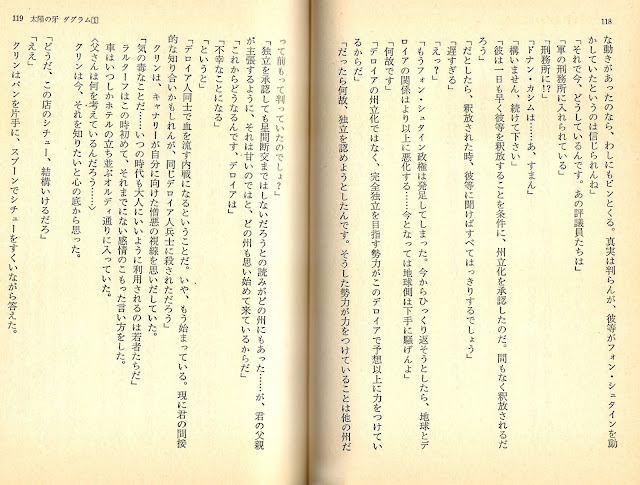 118
な動きがあったのなら、わしにもピンとくる。真実は判らんが、彼等がフォン・シュタインを動
かしていたというのは信じられんね」
「それで今、どうしているんです。あの評議員たちは」
「軍の刑務所に入れられている」
「刑務所に!?」
「ドナン・カシムは……あ、すまん」
「構いません、続けて下さい」
「彼は一日も早く彼等を釈放することを条件に、州立化を承認したのだ。間もなく釈放されるだ
ろう」
「だとしたら、釈放された時、彼等に聞けばすべてはっきりするでしょう」
「遅すぎる」
「えっ？」
「もうフォン・シュタイン政権は発足してしまった。今からひっくり返そうとしたら、地球とデ
ロイアの関係はより以上に悪化する……今となっては地球側は下手に騒げんよ」
「何故です」
「デロイアの州立化ではなく、完全独立を目指す勢力がこのデロイアで予想以上に力をつけてい
るからだ」
「だったら何故、独立を認めようとしたんです。そうした勢力が力をつけていることは他の州だ
119 太陽の牙 ダグラム[1]
って前もって判っていたのでしょ？」
「独立を承認しても星間断交まではしないだろうとの読みがどの州にもあった……が、君の父親
が主張するように、それは甘いのではと、どの州も思い始めて来ているからだ」
「これからどうなるんです、デロイアは」
「不幸なことになる」
「というと」
「デロイア人同士で血を流す内戦になるということだ。いや、もう始まっている。現に君の間接
的な知り合いかもしれんが、同じデロイア人兵士に殺されただろう」
クリンは、キャナリーが自分に向けた憎悪の視線を思いだしていた。
「気の毒なことだ……いつの時代も大人にいいように利用されるのは若者たちだ」
ラルターフはこの時初めて、それまでにない感情のこもった言い方をした。
車はいつしかホテルの立ち並ぶオルディ通りに入っていた。
〈父さんは何を考えているんだろう……〉
クリンは今、それを知りたいと心の底から思った。
「どうだ、この店のシチュー、結構いけるだろ」
「ええ」
クリンはパンを片手に、スプーンでシチューをすくいながら答えた。